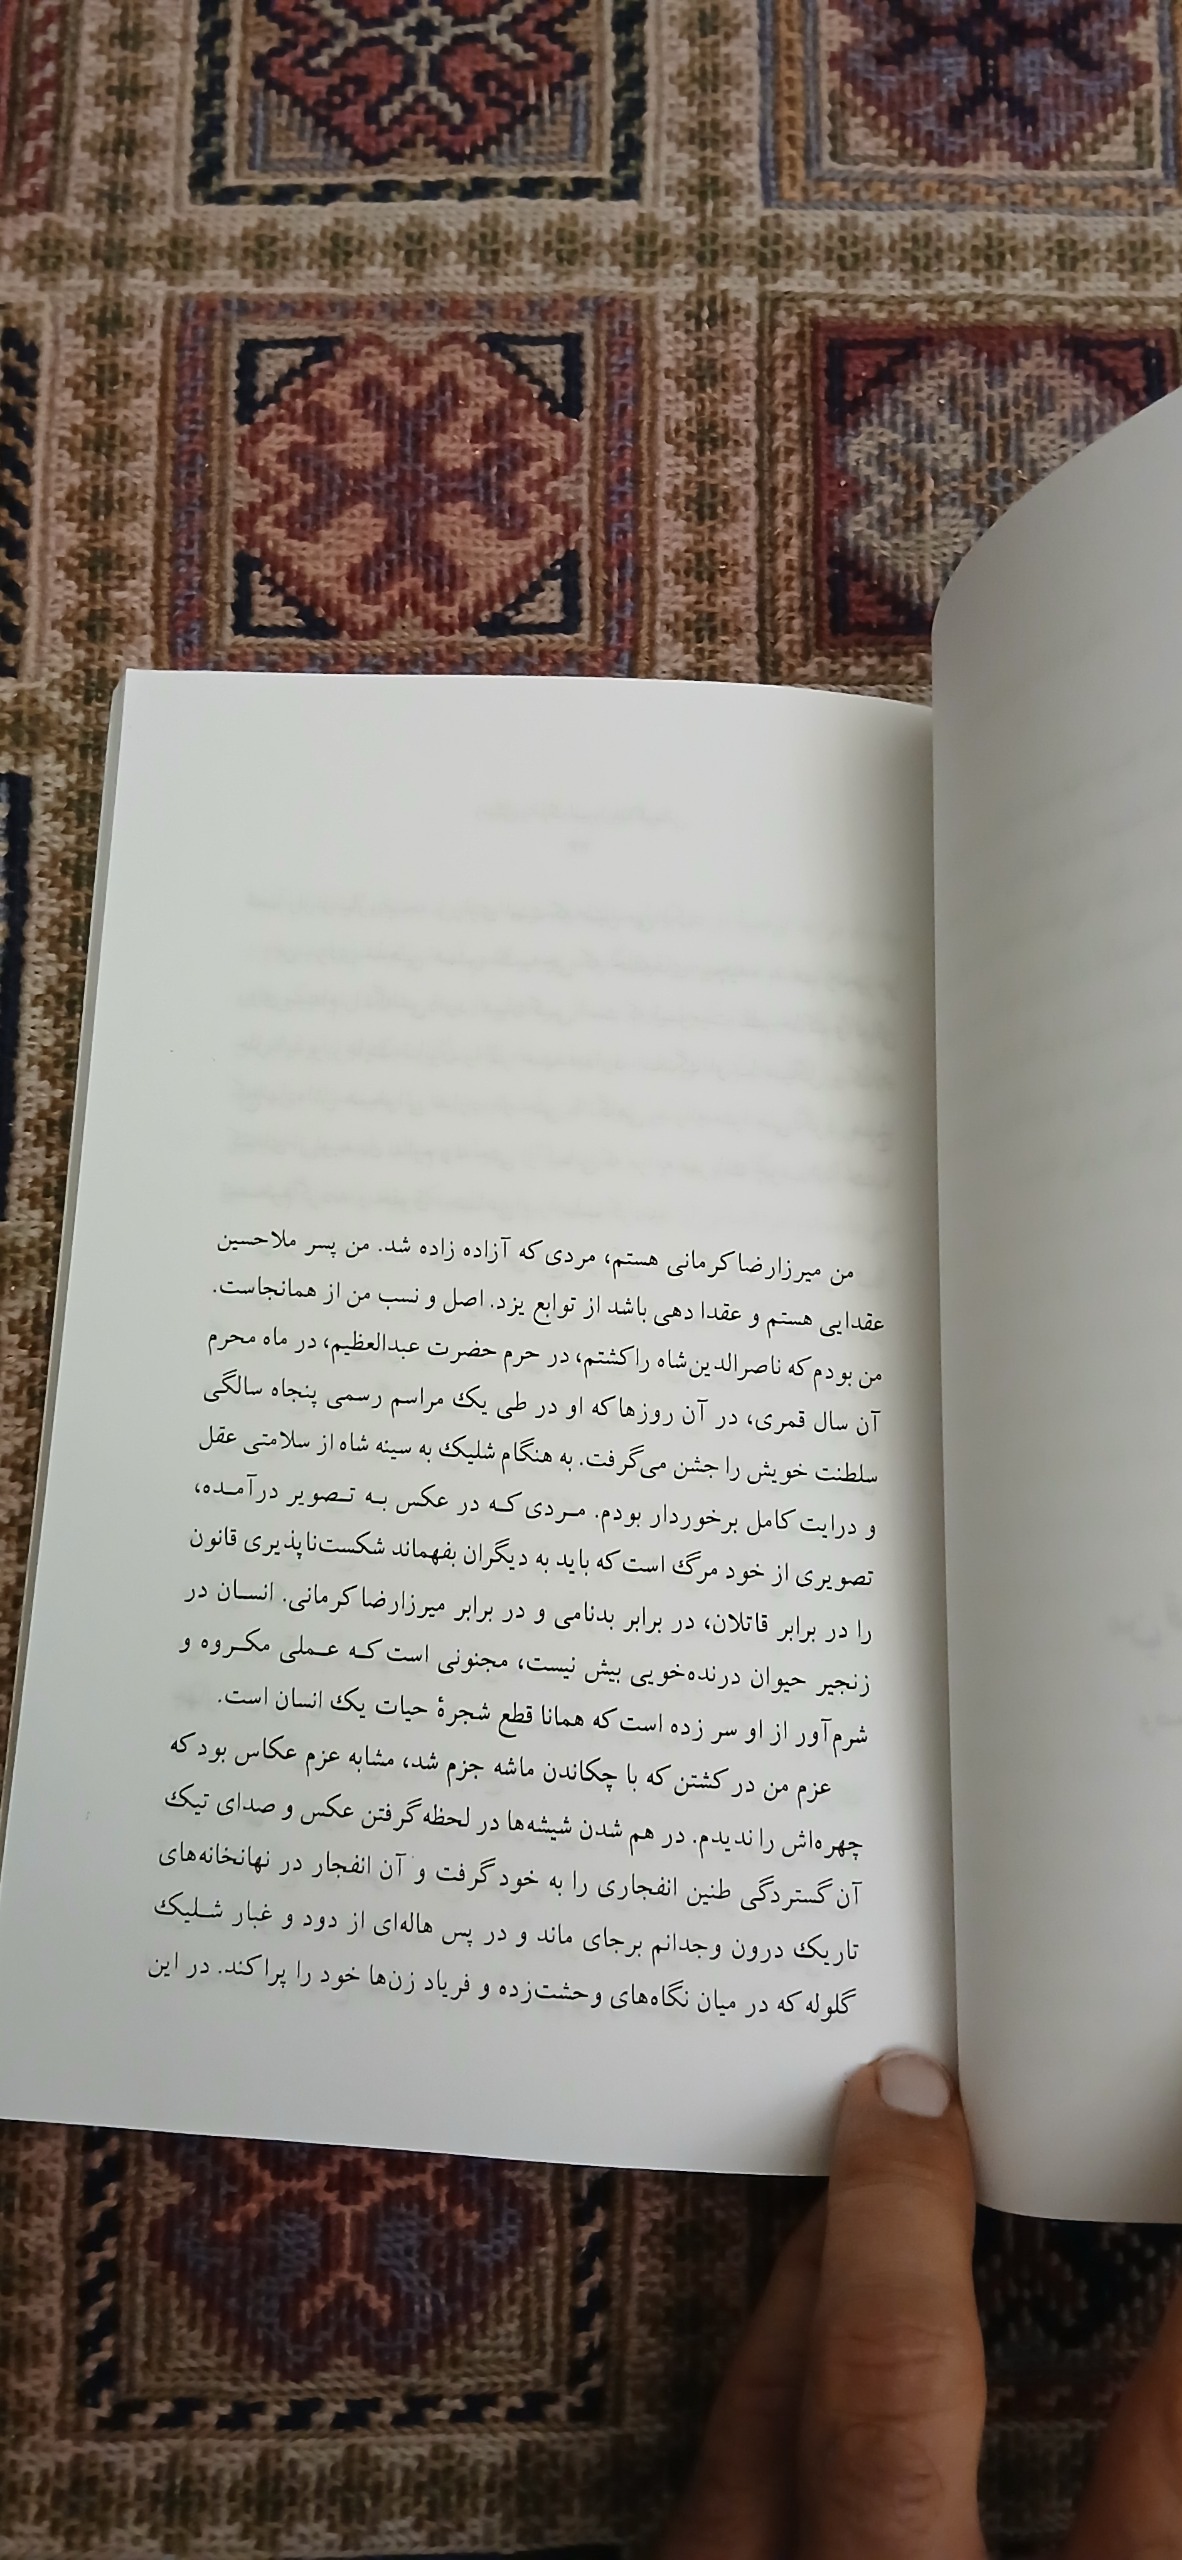 من میرزارضا کرمانی هستم، مردی که آزاده زاده شد. من پسر ملاحسین
عقدایی هستم و عقدا دهی باشد از توابع یزد. اصل و نسب من از همانجاست.
من بودم که ناصرالدین‌شاه را کشتم، در حرم حضرت عبدالعظیم، در ماه محرم
آن سال قمری، در آن روزها که او در طی یک مراسم رسمی پنجاه سالگی
سلطنت خویش را جشن می‌گرفت. به هنگام شلیک به سینه شاه از سلامتی عقل
و درایت کامل برخوردار بودم. مردی که در عکس به تصویر درآمده،
تصویری از خود مرگ است که باید به دیگران بفهماند شکست‌ناپذیری قانون
را در برابر قاتلان، در برابر بدنامی و در برابر میرزارضا کرمانی. انسان در
زنجیر حیوان درنده‌خویی بیش نیست، مجنونی است که عملی مکروه و
شرم‌آور از او سر زده است که همانا قطع شجرهٔ حیات یک انسان است.
عزم من در کشتن که با چکاندن ماشه جزم شد، مشابه عزم عکاس بود که
چهره‌اش را ندیدم. در هم شدن شیشه‌ها در لحظه گرفتن عکس و صدای تیک
آن گستردگی طنین انفجاری را به خود گرفت و آن انفجار در نهانخانه‌های
تاریک درون وجدانم برجای ماند و در پس هاله‌ای از دود و غبار شلیک
گلوله که در میان نگاه‌های وحشت‌زده و فریاد زن‌ها خود را پراکند. در این